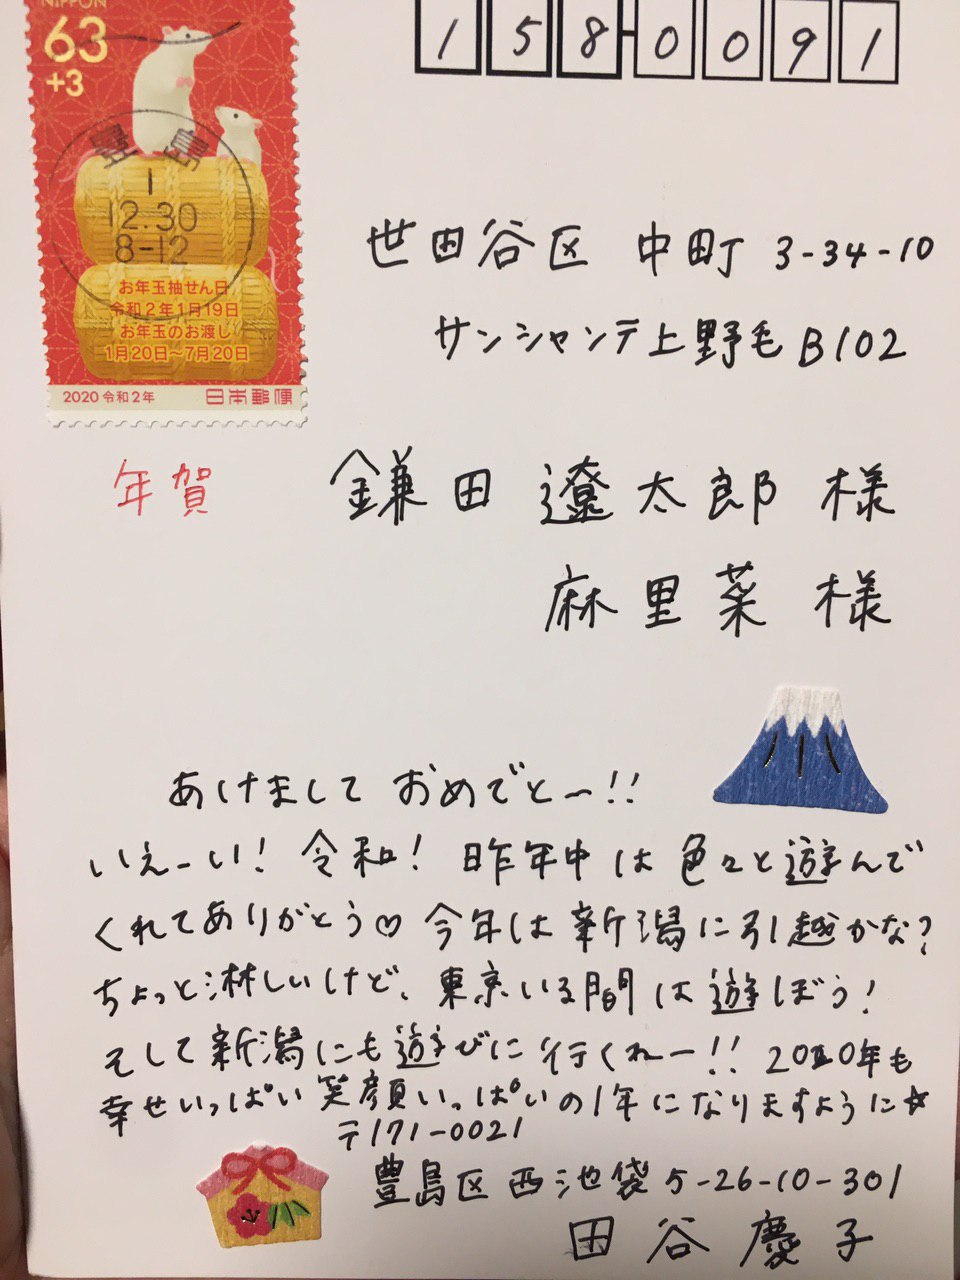 NIPPON
63
+3
豊島
1
12.30
8-12
お年玉抽せん日
令和2年1月19日
お年玉のお渡し
1月20日~7月20日
2020 令和2年 日本郵便
158-0091
世田谷区 中町 3-34-10
サンシャンテ上野毛 B102
年賀
鎌田 遼太郎 様
麻里菜 様
あけまして おめでとー!!
いえーい! 令和! 昨年中は色々と遊んで
くれてありがとう♡ 今年は新潟に引越かな?
ちょっと淋しいけど、東京いる間は遊ぼう!
そして新潟にも遊びに行くれー!! 2020年も
幸せいっぱい笑顔いっぱいの1年になりますように☆
〒171-0021
豊島区西池袋5-26-10-301
田谷 慶子